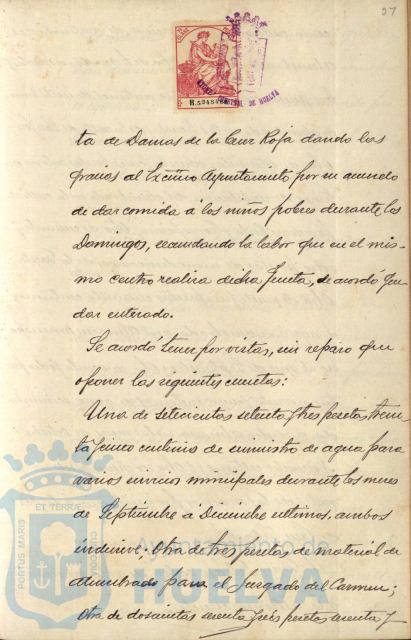 27
B.5248486
ta de Damas de la Cruz Roja dando las
gracias al Excmo Ayuntamiento por su acuerdo
de dar comida á los niños pobres durante los
Domingos, secundando la labor que en el mis-
mo centro realiza dicha Junta, se acordó que-
dar enterado.
Se acordó tener por vistas, sin reparo que
oponer las siguientes cuentas:
Una de setecientas setenta y tres pesetas, trein-
ta y cinco centimos de suministro de agua para
varios servicios municipales durante los meses
de Septiembre á Diciembre ultimos, ambos
inclusive. Otra de tres pesetas de material de
alumbrado para el Juzgado del Carmen;
Otra de doscientas y tres pesetas
PORTUS MARIS
ET TERRÆ
CUSTODIA
Ayuntamiento de
HUELVA